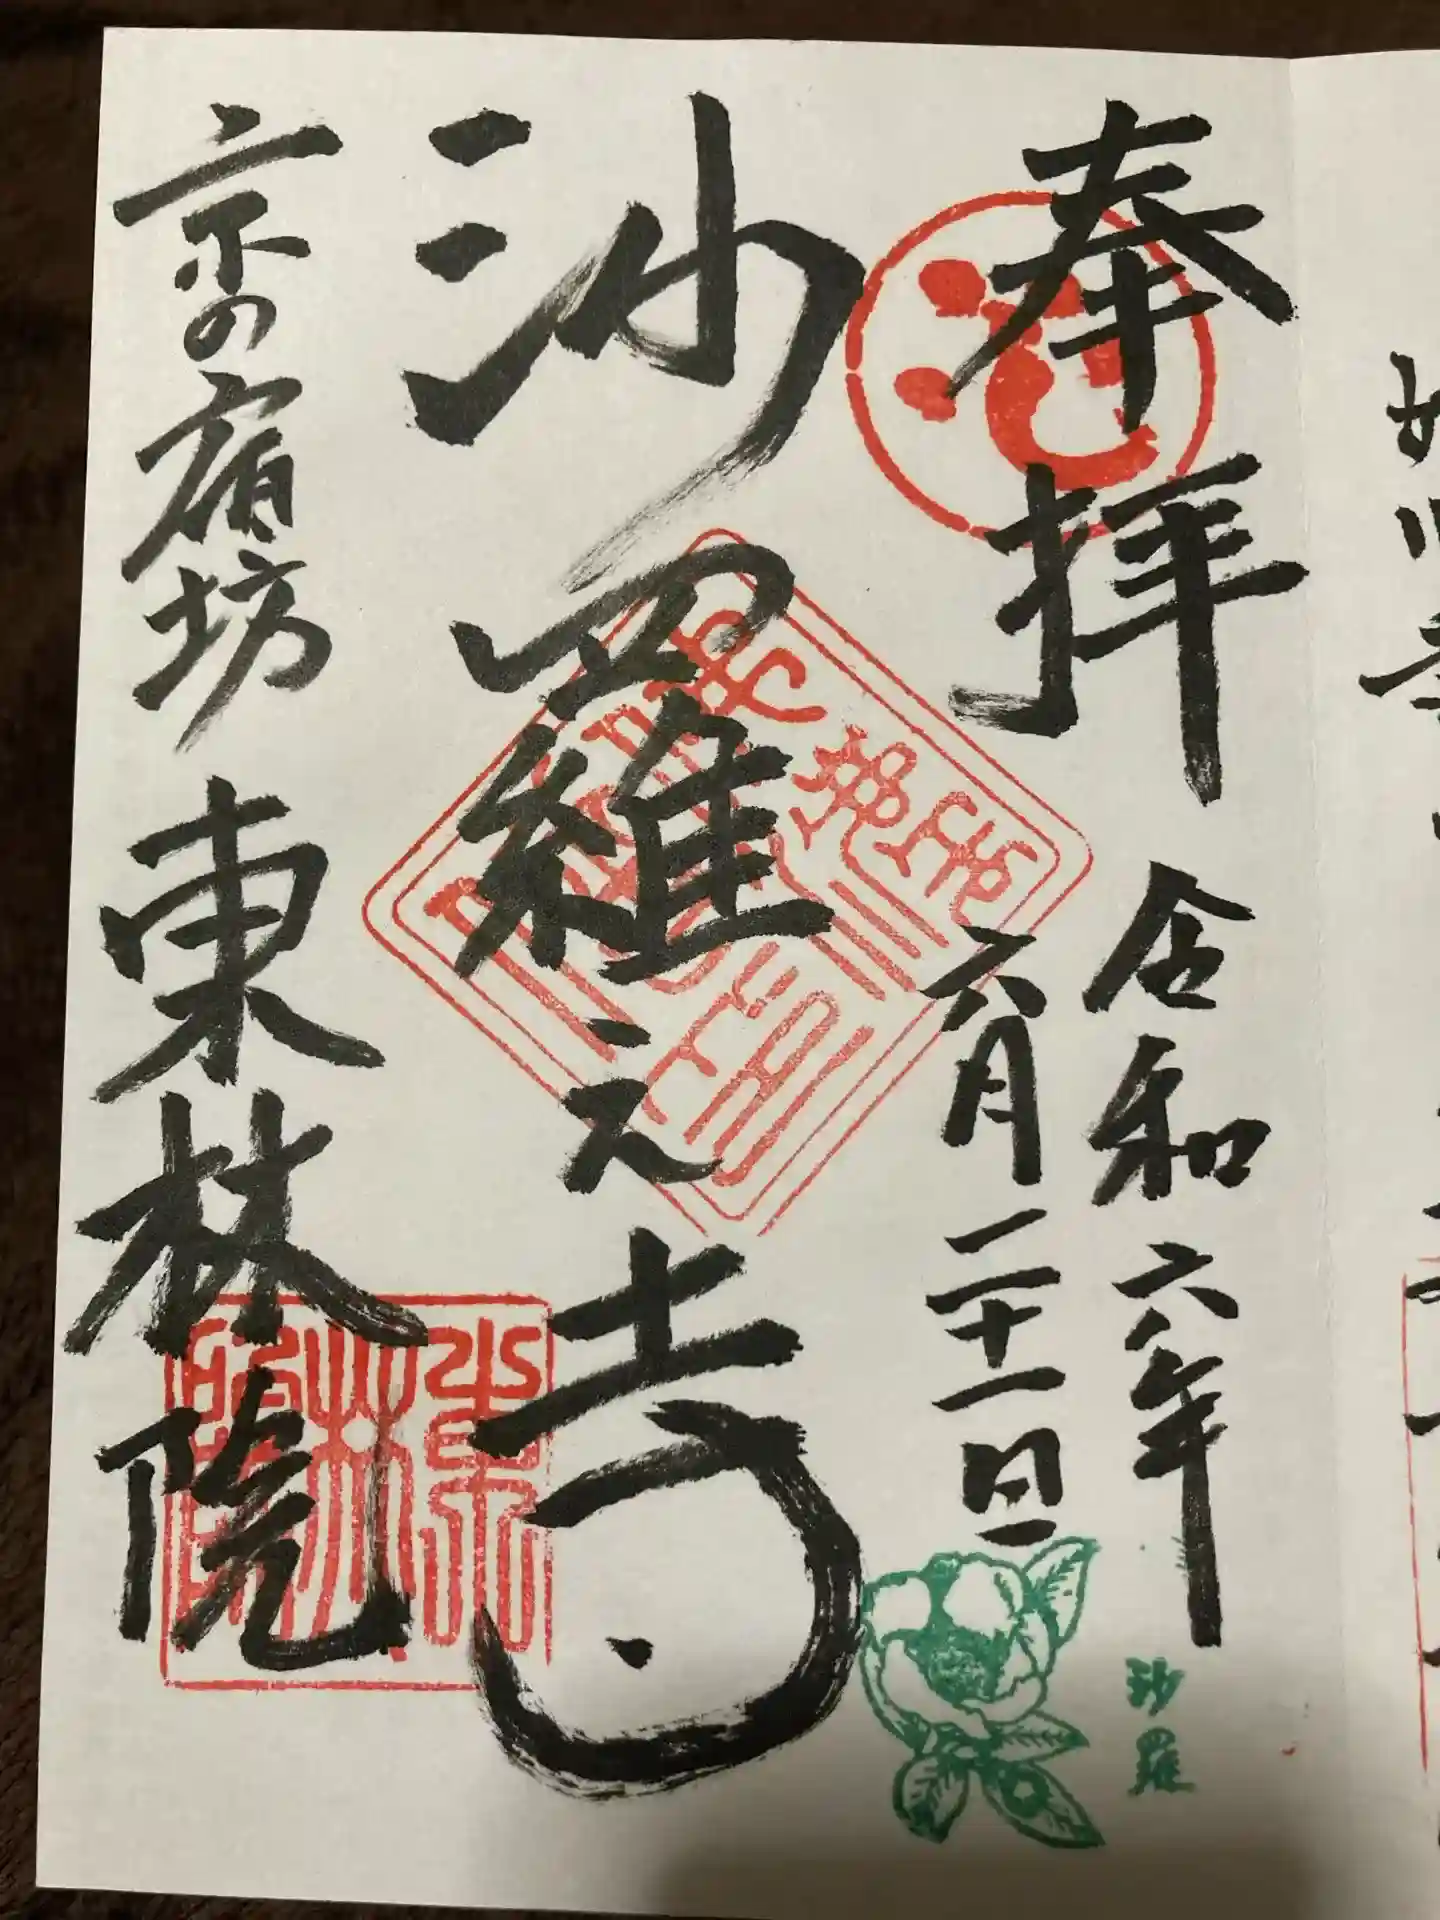 奉拝
令和六年
六月二十一日
沙羅
沙羅之寺
京の宿坊
東林院